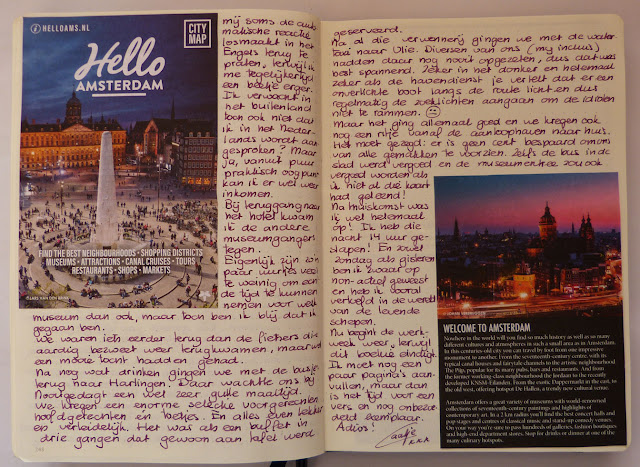 HELLOAMS.NL
CITY
MAP
Hello
AMSTERDAM
FIND THE BEST NEIGHBOURHOODS • SHOPPING DISTRICTS
MUSEUMS • ATTRACTIONS • CANAL CRUISES • TOURS
RESTAURANTS • SHOPS • MARKETS
mij soms de auto
matische reactie
losmaakt in het
Engels terug te
praten, terwijl ik
me tegelijkertijd
een beetje erger.
Ik verwacht in
het buitenland
toch ook niet dat
ik in het Neder-
lands wordt aan
gesproken? Maar
ja, vanuit puur
praktisch oogpunt
kan ik er wel weer
inkomen.
Bij teruggang naar
het hotel kwam
ik de andere
museumgangers
tegen.
Eigenlijk zijn zo'n
paar uurtjes veel
te weinig om echt
de tijd te kunnen
nemen voor welk
museum dan ook, maar toch ben ik blij dat ik
gegaan ben.
We waren iets eerder terug dan de fietsers die
aardig bezweet weer terugkwamen, maar wel
een mooie tocht hadden gehad.
Na nog wat drinken gingen we met de busjes
terug naar Harlingen. Daar wachtte ons bij
Nooitgedagt een wel zeer gulle maaltijd.
We kregen een enorme selectie voorgerechten
hoofdgerechten en toetjes. En alles even lekker
en verleidelijk. Het was als een buffet in
drie gangen dat gewoon aan tafel werd
geserveerd.
Na al die verwennerij gingen we met de water
taxi naar Vlie. Diversen van ons (mij incluis)
hadden daar nog nooit opgezeten, dus dat was
best spannend. Zeker in het donker en helemaal
zeker als de havendienst je vertelt dat er een
onverlichte boot langs de route licht en dus
regelmatig de zoeklichten aangaan om de idioten
niet te rammen.
Maar het ging allemaal goed en we kregen ook
nog een ritje vanaf de aankophaven naar huis.
Het moet gezegd: er is geen cent bespaard om ons
van alle gemakken te voorzien. Zelfs de bus in de
stad werd vergoed en de museumentree zou ook
vergoed worden als
ik niet al die kaart
had geleend!
Na thuiskomst was
ik wel helemaal
op! Ik heb die
nacht 14 uur ge-
slapen! En zowel
zondag als gisteren
ben ik zwaar op
non-actief geweest
en heb ik vooral
vertoefd in de wereld
van de levende
schepen.
Nu begint de werk-
week weer, terwijl
dit boekje eindigt
Ik moet nog een
paar pagina's aan-
vullen, maar dan
is het tijd voor een
vers en nog onberoe-
detd exemplaar.
Adios!
WELCOME TO AMSTERDAM
Nowhere in the world will you find so much history as well as so many
different cultures and atmospheres in such a small area as in Amsterdam.
In this centuries-old city you can travel by foot from one impressive
monument to another. From the seventeenth-century centre, with its
typical canal houses and fairytale channels to the artistic neighbourhood
The Pijp, popular for its many pubs, bars and restaurants. And from
the former working-class neighbourhood the Jordaan to the recently
developed KNSM-Eilanden. From the exotic Dappermarkt in the east, to
the old west, offering hotspot De Hallen, a trendy new cultural venue.
Amsterdam offers a great variety of museums with world-renowned
collections of seventeenth-century paintings and highlights of
contemporary art. In a 2 km radius you'll find the best concert halls and
pop stages and centres of classical music and stand-up comedy venues.
On your way you're sure to pass hundreds of galleries, fashion boutiques
and high-end department stores. Stop for drinks or dinner at one of the
many culinary hotspots.